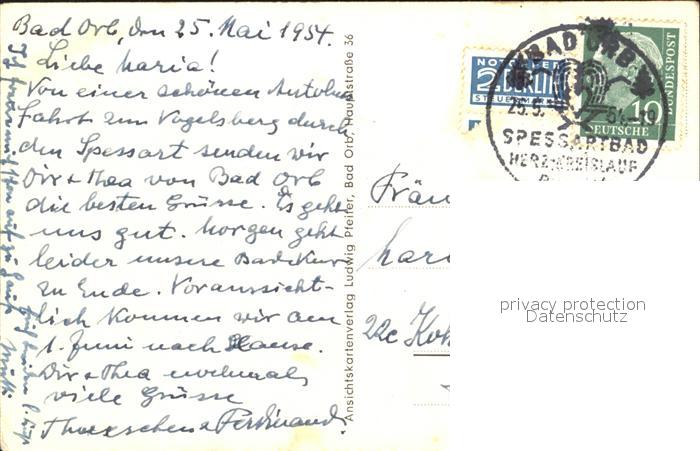 Bad Orb, den 25. Mai 1954.
Liebe Maria!
Von einer schönen Autobus
fahrt zum Vogelsberg durch
den Spessart senden wir
Dir + Thea von Bad Orb
die besten Grüsse. Es geht
uns gut. Morgen geht
leider unsere Badekur
zu Ende. Voraussicht-
lich kommen wir am
1. Juni nach Hause.
Dir + Thea nochmals
viele Grüsse
Ferdinand
Ansichtskartenverlag Ludwig Pfeifer, Bad Orb, Hauptstraße 36
NOTOPFER
2 BERLIN
STEUERMARKE
BAD ORB
25.5. 54-19
SPESSARTBAD
HERZ-KREISLAUF
DEUTSCHE
BUNDESPOST
10
Fräu
Mari
22c
privacy protection
Datenschutz